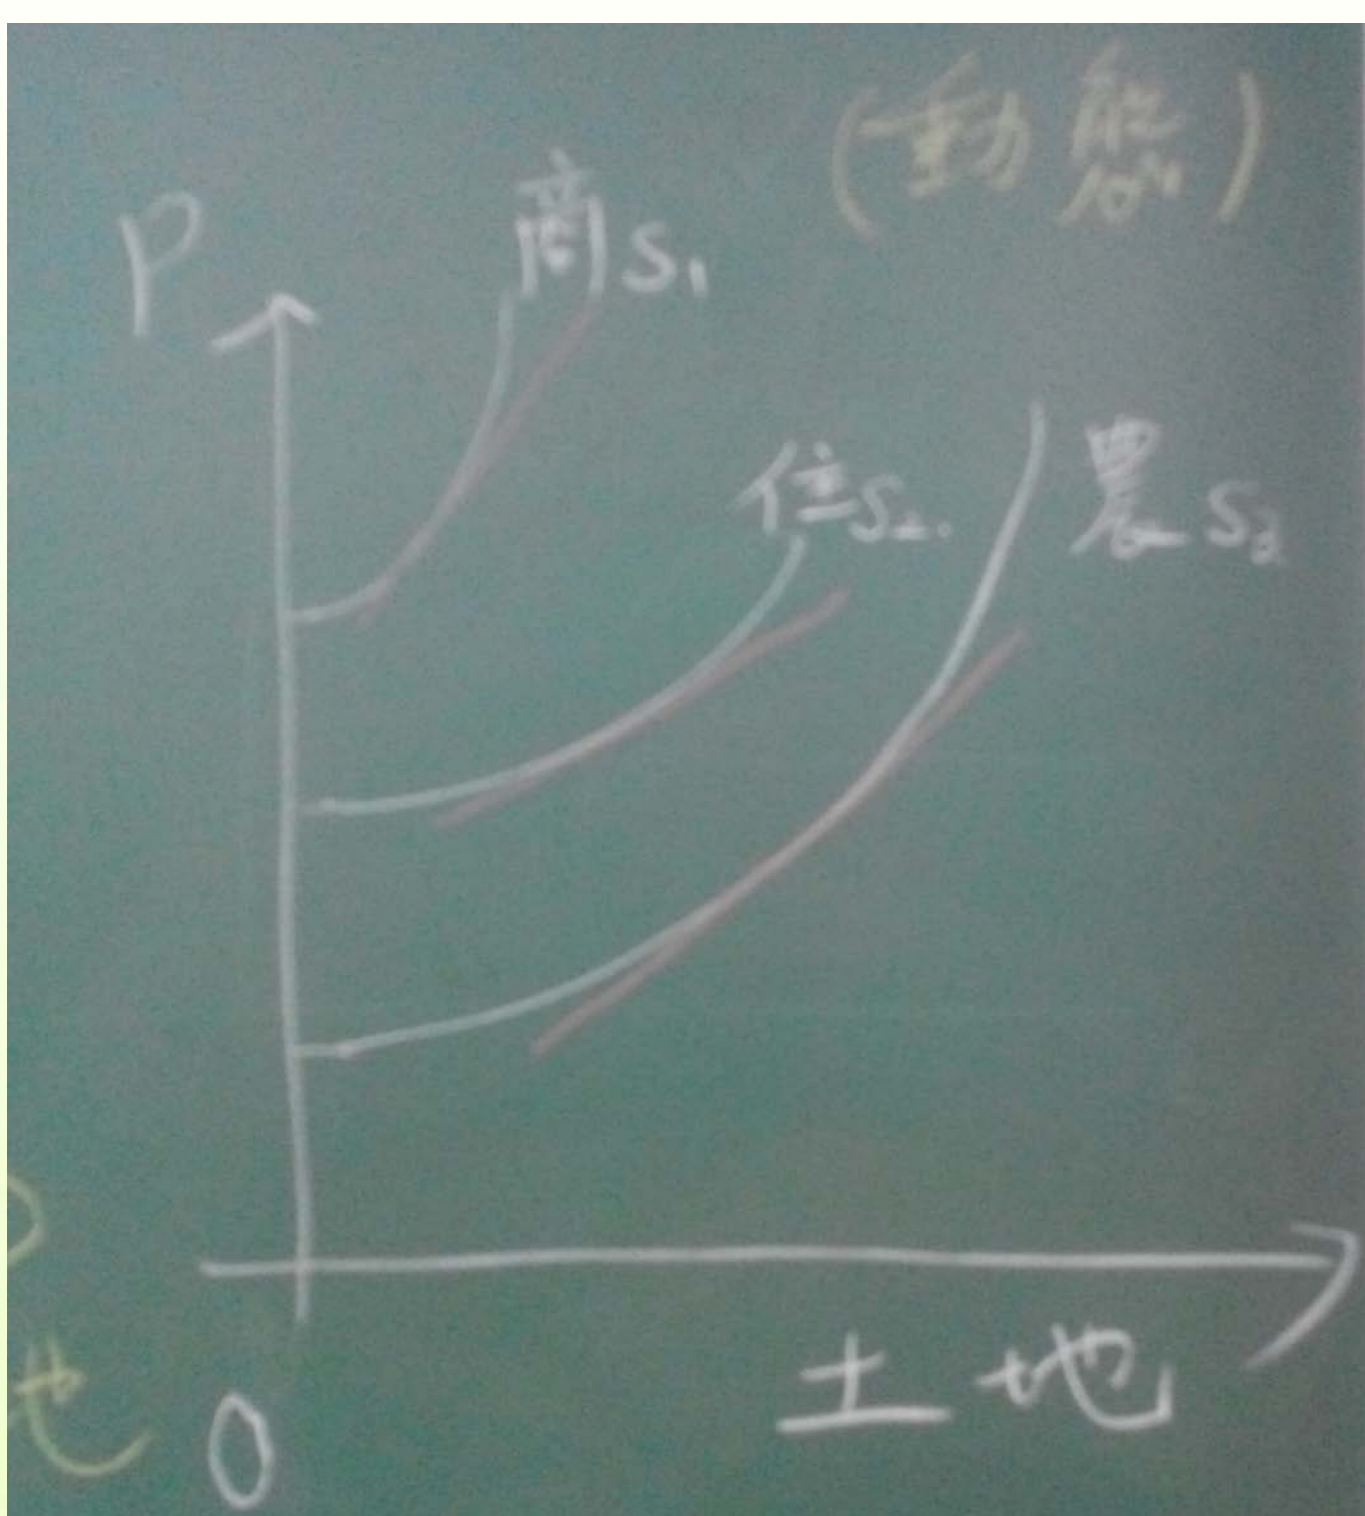 (動態)
P
商S₁
住S₂.
農S₃
土地
地
0